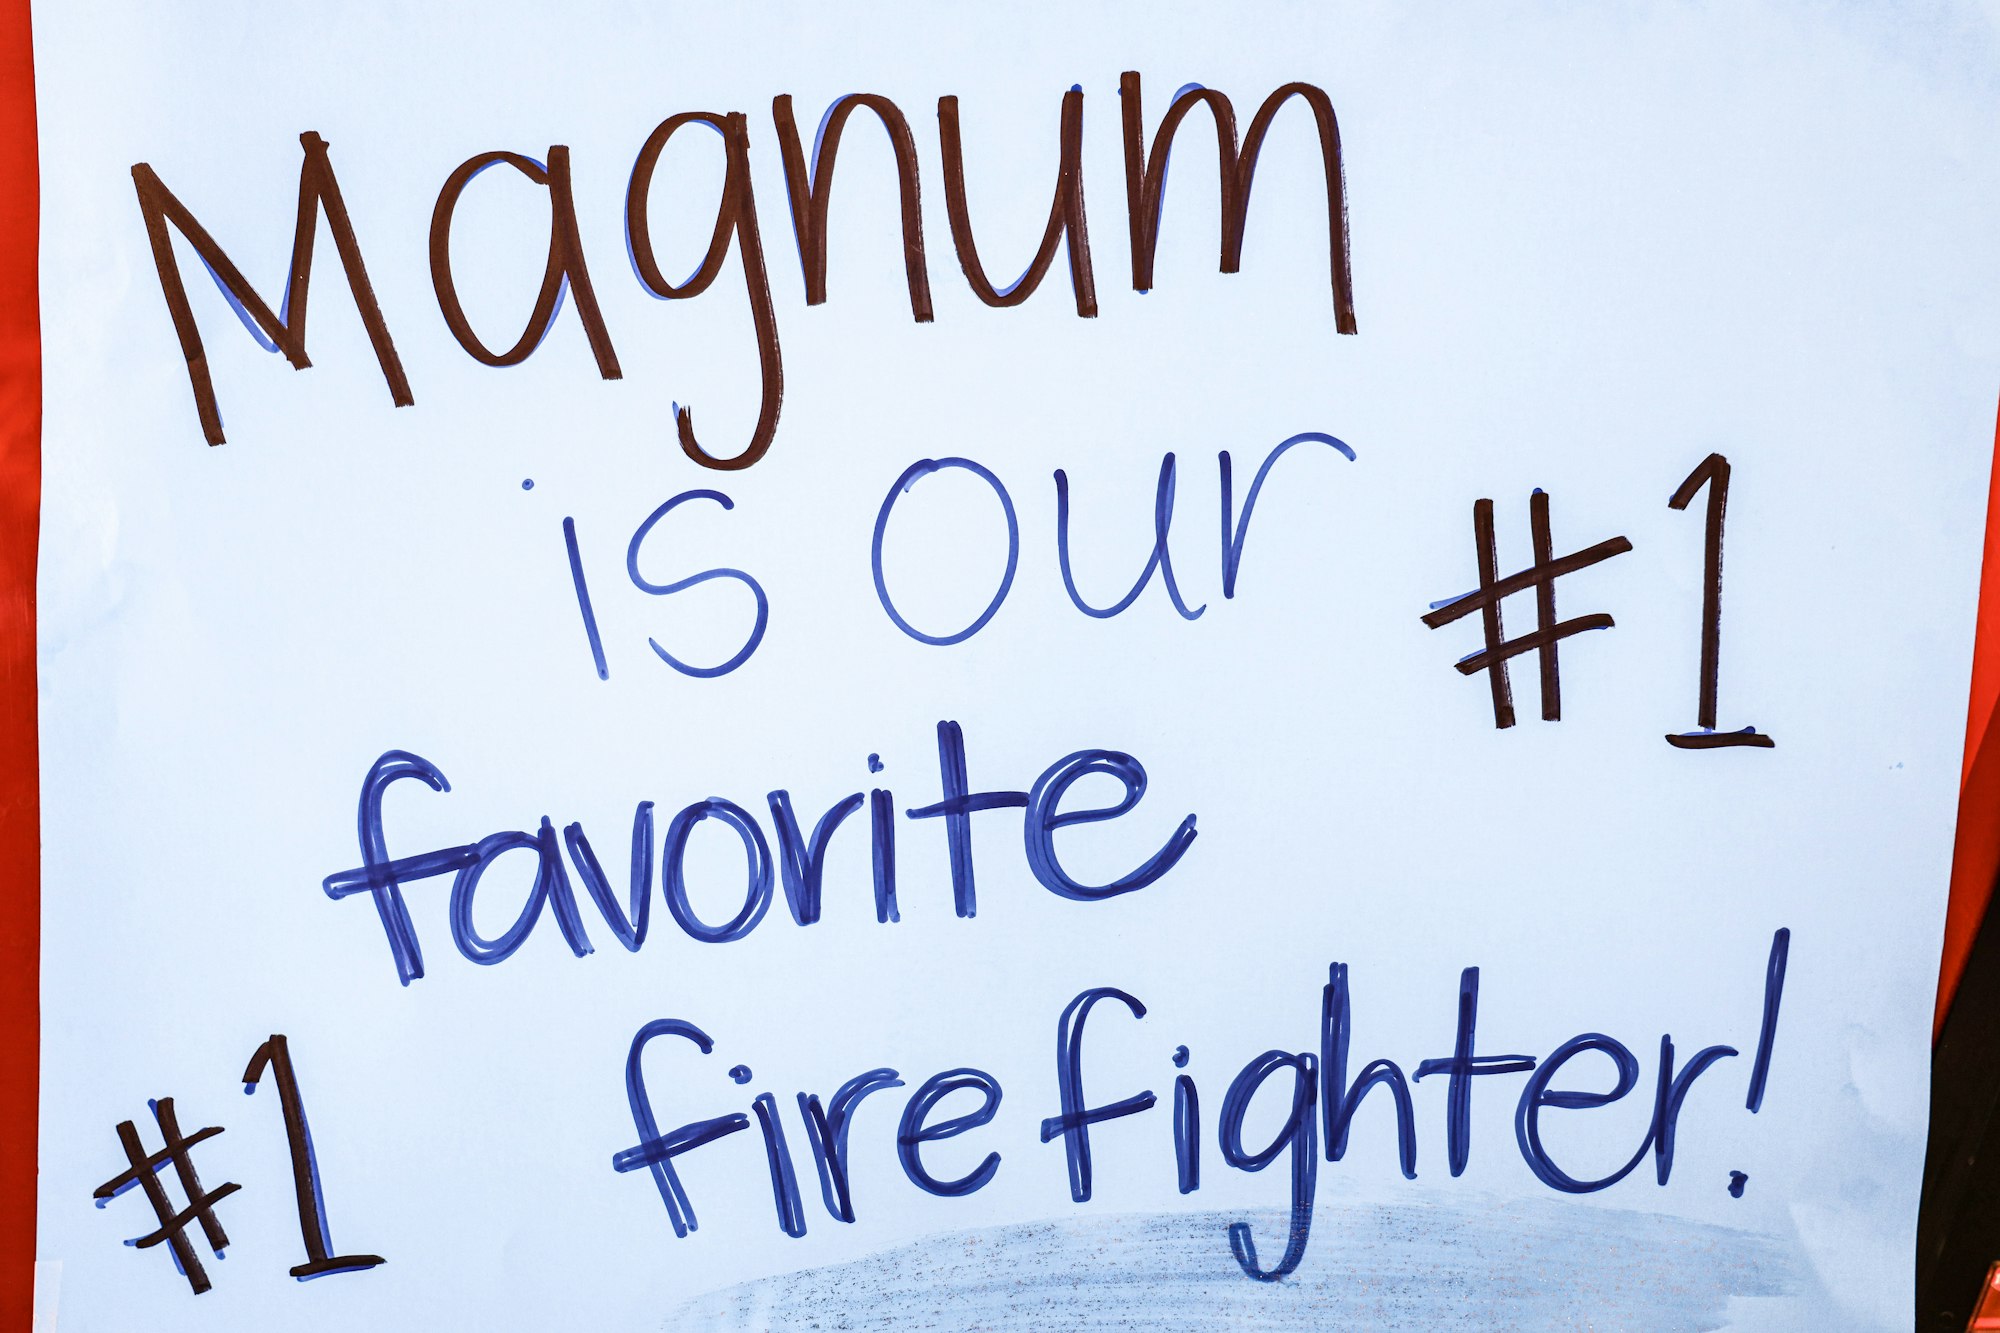 Magnum
is our
#1
favorite
#1 firefighter!